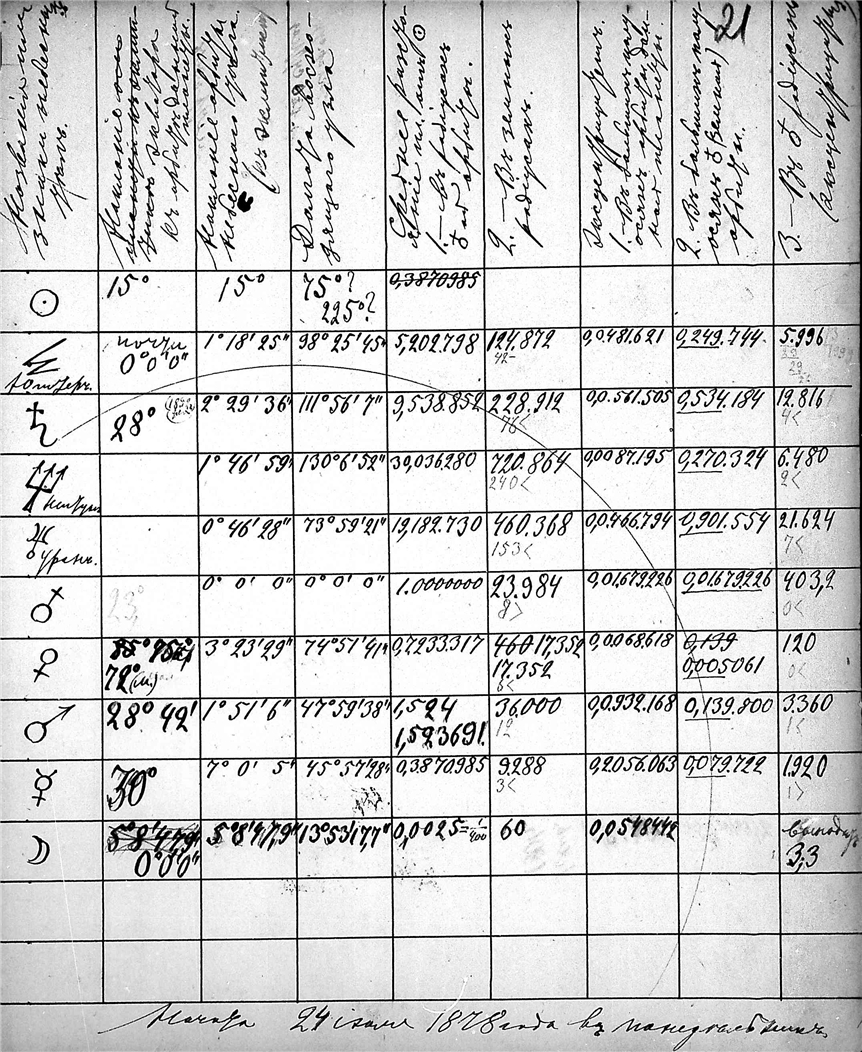 21
Названія или знаки небесн. тѣлъ.
Наклоненіе орбиты небеснаго тѣла (къ эклиптикѣ)
Долгота восходящаго узла
Среднее разстояніе пл. отъ ☉ 1.— Въ радіусахъ ♁ой орбиты.
2. — Въ земныхъ радіусахъ.
Эксцентрицитет. 1. Въ большихъ полуосяхъ орбиты данной планеты.
2. Въ большихъ полуосяхъ ♁ (земной) орбиты.
3. — Въ ♁ радіусахъ (эксцентрицитетъ)
☉ 15° 15° 75°? 225°? 0,3870985
Юпитеръ. почти 0°0'0" 1°18'25" 98°25'45" 5,202798 124.872 42- 0,0481.621 0,249.744. 5.996
♄ 28° 2°29'36" 111°56'7" 9,538.852 228.912 76< 0,0.561.505 0,534.184 12.816 4<
Нептунъ 1°46'59" 130°6'52" 30,036280 720.864 240< 0,0087.195 0,270.324 6.480 2<
Уранъ. 0°46'28" 73°59'21" 19,182.730 460.368 153< 0,0.466.794 0,901.554 21.624 7<
♁ 23° 0°0'0" 0°0'0" 1.0000000 23.984 8> 0,01.679.226 0,01.679.226 403,2 0<
♀ 72° 3°23'29" 74°51'41" 0,7233.317 460 17,352 17.352 6< 0,0068.618 0,139 0,005061 120 0<
♂ 28°42' 1°51'6" 47°59'38" 1,524 1,523691. 36.000 12 0,0.932.168 0,139.800 3.360 1<
☿ 30° 7°0'5" 45°57'28" 0,3870985 9.288 3< 0,2056.063 0,079.722 1.920 1>
☽ 5°8'47,9" 0°0'0" 5°8'47,9" 13°53'17,7" 0,0025=1/400 60 0,0548442 3,3
Начата 24 іюля 1878 года въ понедѣльникъ